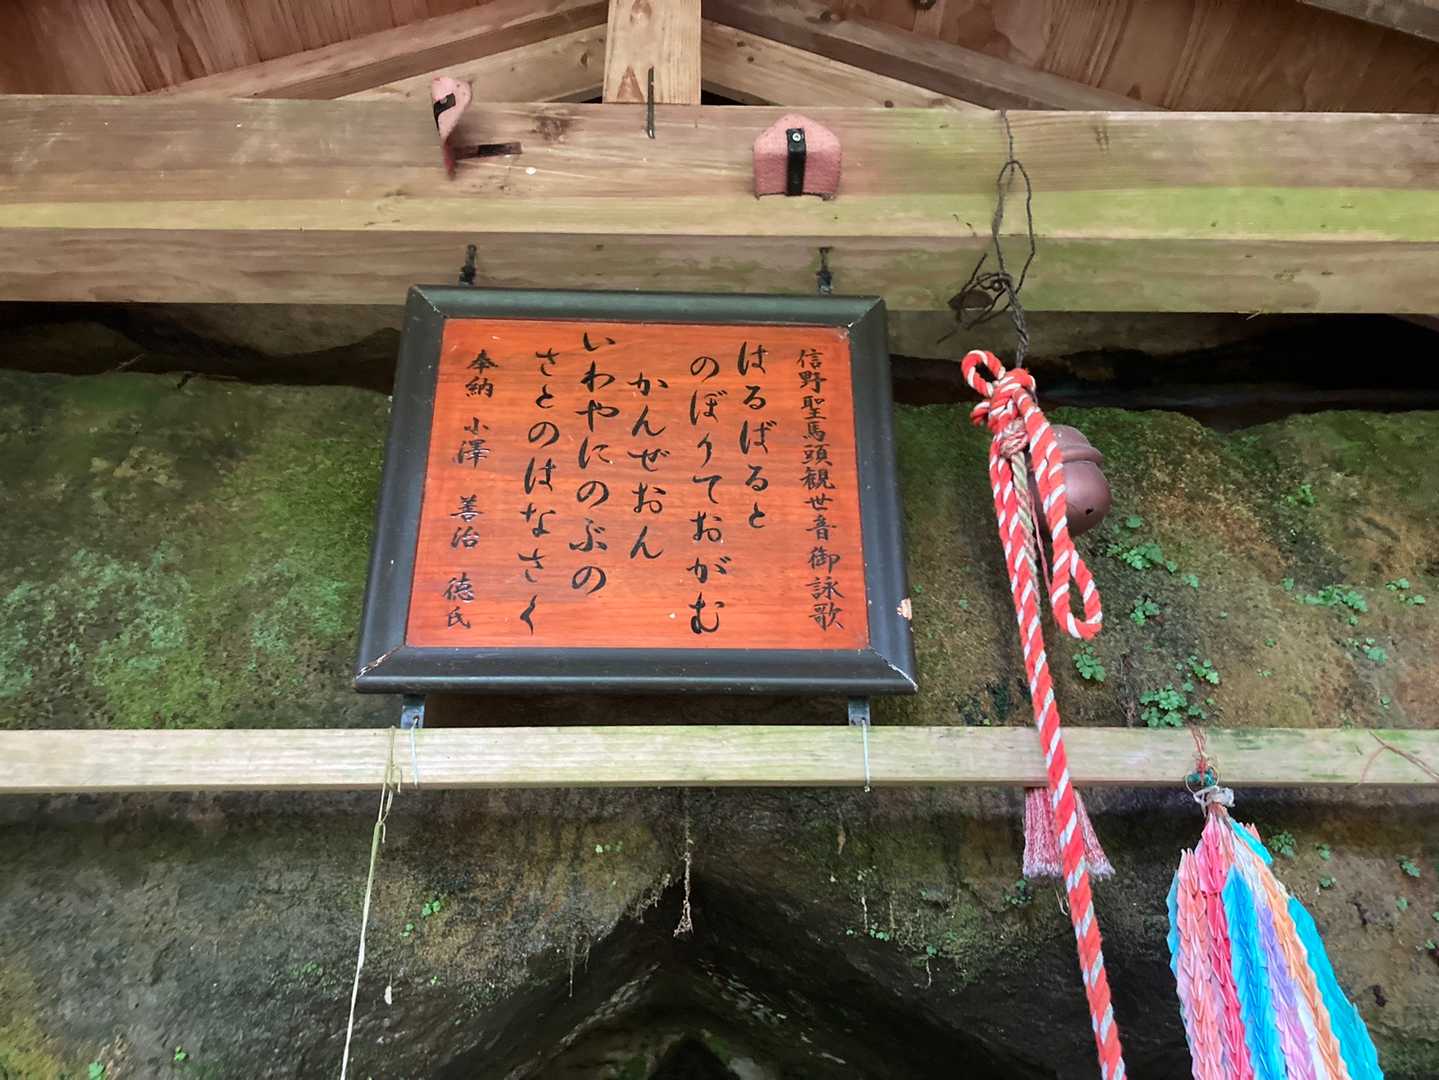 信野聖馬頭観世音御詠歌
はるばると
のぼりておがむ
かんぜおん
いわやにのぶの
さとのはなさく
奉納 小澤 善治 徳氏